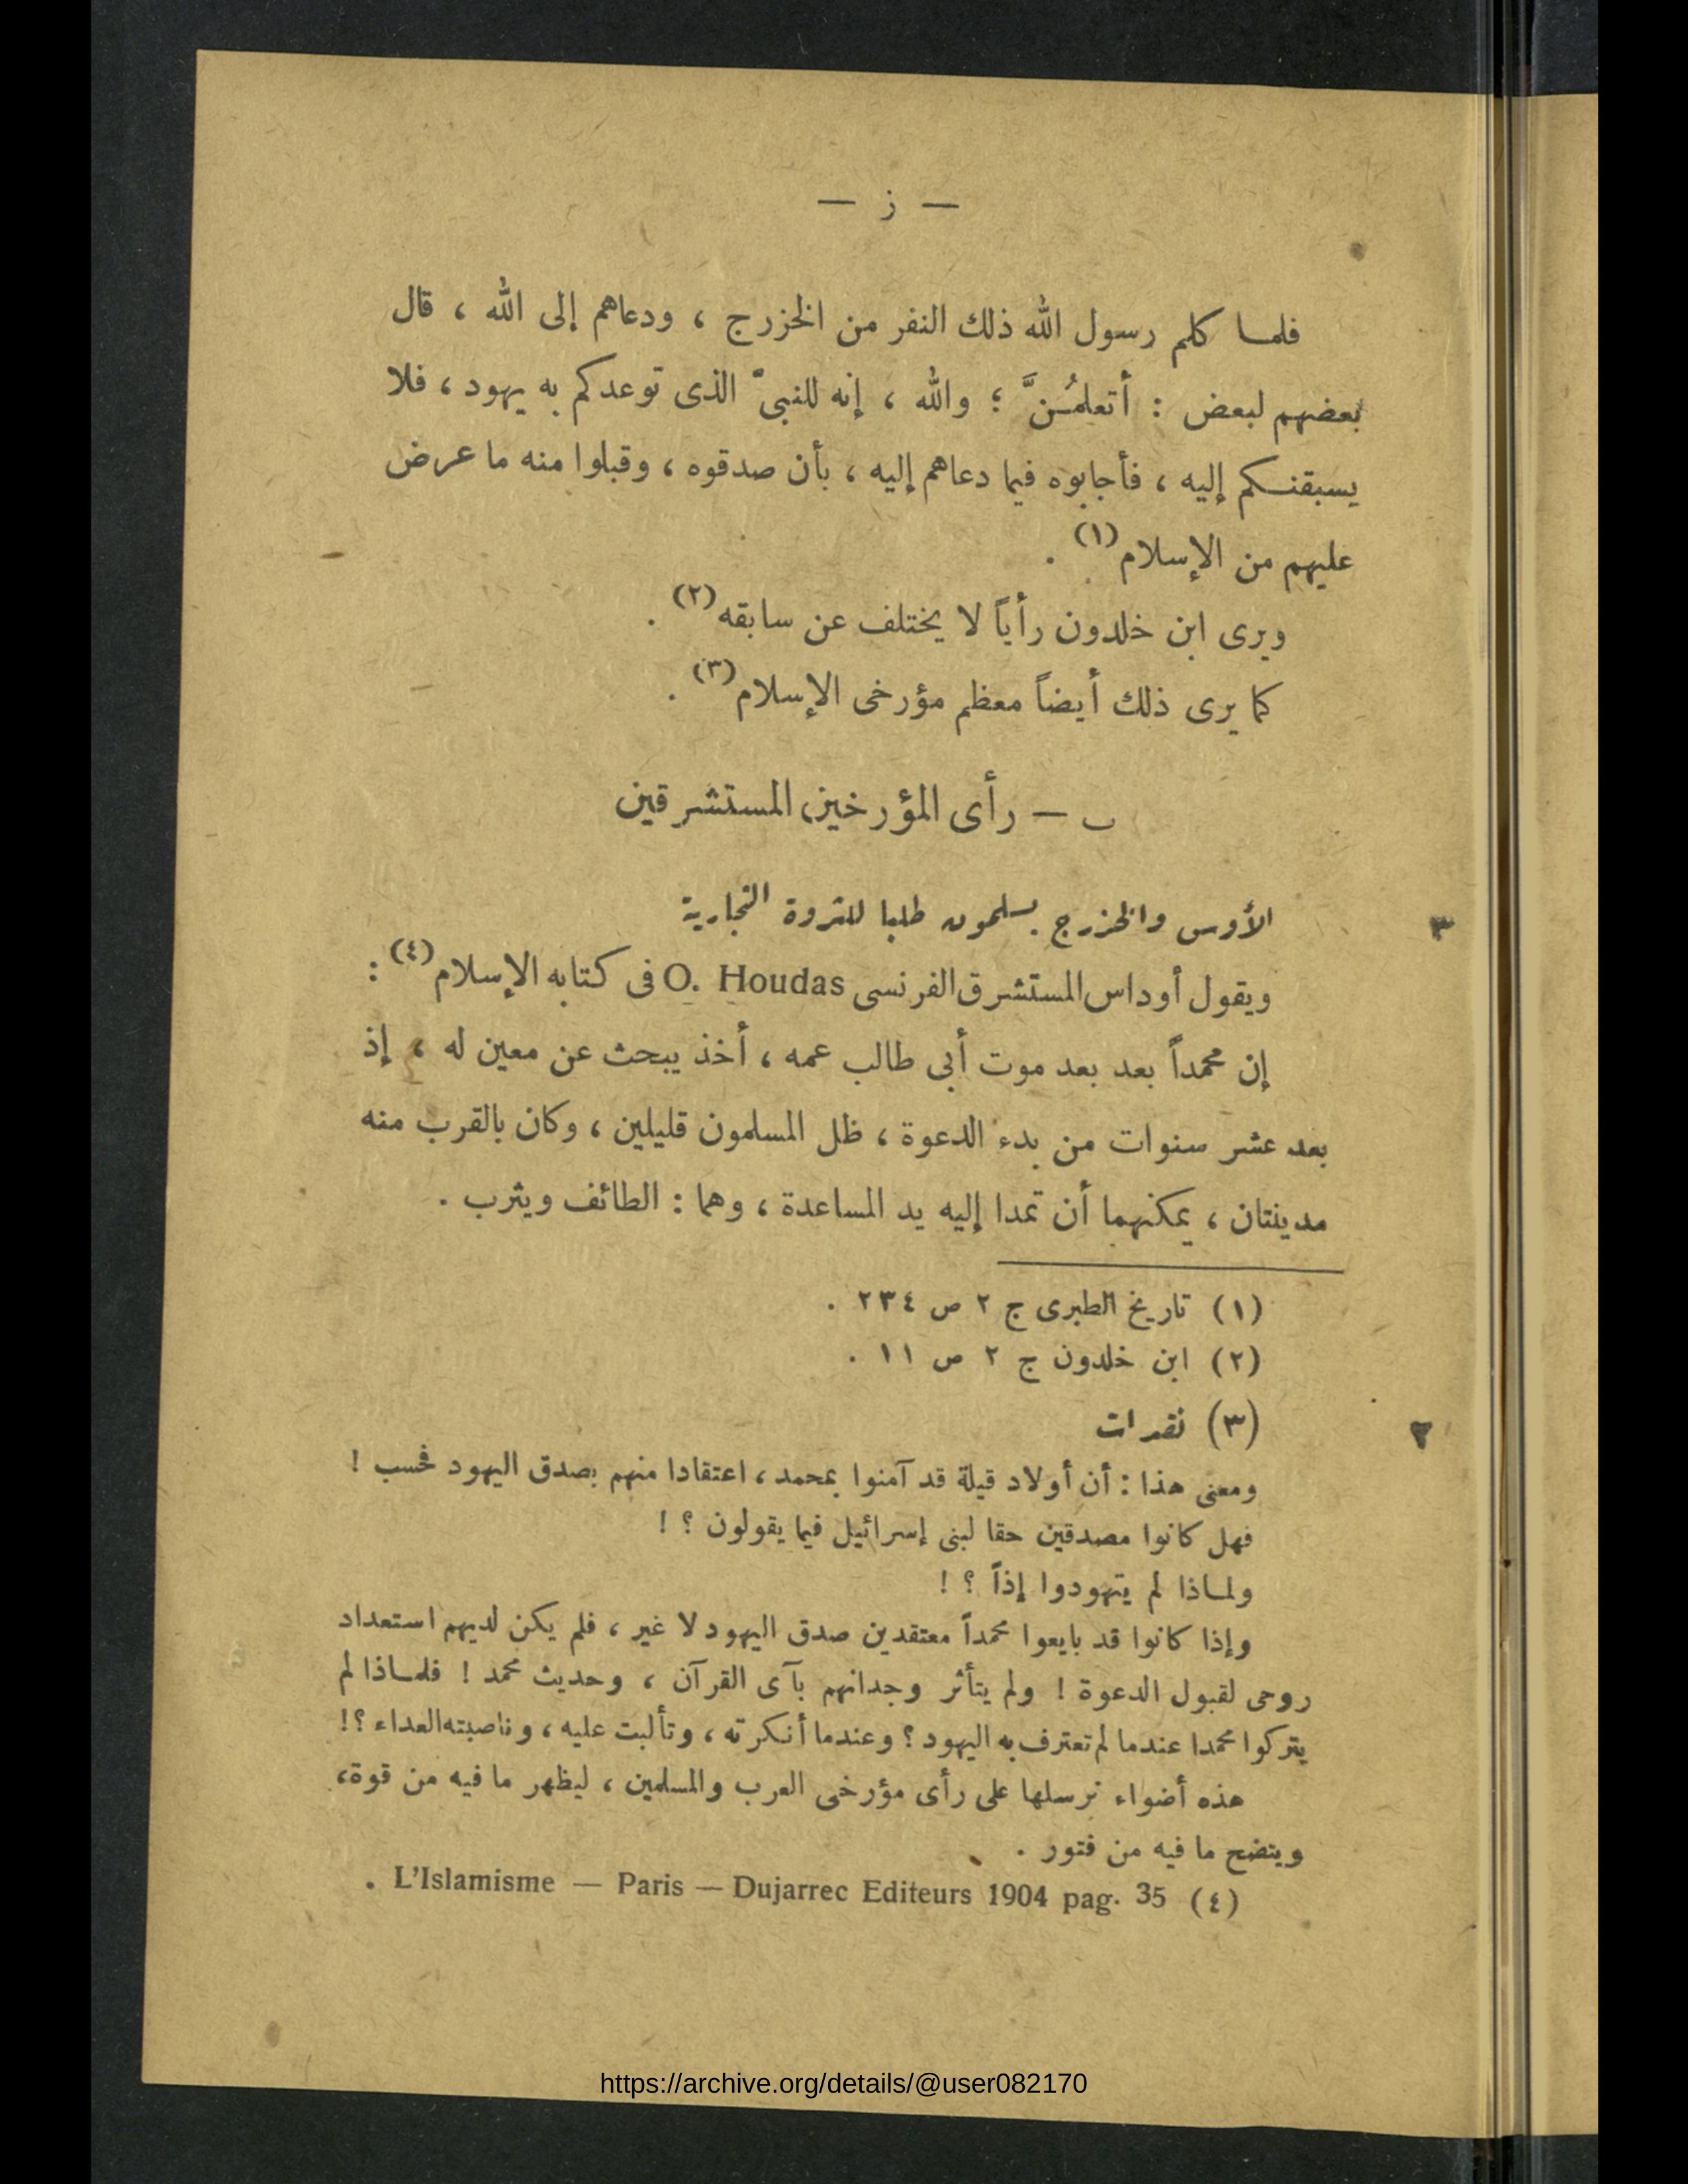 — ز —
فلمـا كلم رسول الله ذلك النفر من الخزرج ، ودعاهم إلى الله ، قال
بعضهم لبعض : أتعلمُـنَّ ؛ والله ، إنه للنبىّ الذى توعدكم به يهود ، فلا
يسبقنـكم إليه ، فأجابوه فيما دعاهم إليه ، بأن صدقوه ، وقبلوا منه ما عرض
عليهم من الإسلام (١) .
ويرى ابن خلدون رأياً لا يختلف عن سابقه (٢) .
كما يرى ذلك أيضاً معظم مؤرخى الإسلام (٣) .
ب — رأى المؤرخين المستشرقين
٣ الأوس والخزرج يسلمون طلبا للثروة التجارية
ويقول أوداس المستشرق الفرنسى O. Houdas فى كتابه الإسلام (٤) :
إن محمداً بعد بعد موت أبى طالب عمه ، أخذ يبحث عن معين له ، إذ
بعد عشر سنوات من بدء الدعوة ، ظل المسلمون قليلين ، وكان بالقرب منه
مدينتان ، يمكنهما أن تمدا إليه يد المساعدة ، وهما : الطائف ويثرب .
(١) تاريخ الطبرى ج ٢ ص ٢٣٤ .
(٢) ابن خلدون ج ٢ ص ١١ .
(٣) نقدات
ومعنى هذا : أن أولاد قيلة قد آمنوا بمحمد ، اعتقادا منهم بصدق اليهود فحسب !
فهل كانوا مصدقين حقا لبنى إسرائيل فيما يقولون ؟ !
ولمـاذا لم يتهودوا إذاً ؟ !
وإذا كانوا قد بايعوا محمداً معتقدين صدق اليهود لا غير ، فلم يكن لديهم استعداد
روحى لقبول الدعوة ! ولم يتأثر وجدانهم بآى القرآن ، وحديث محمد ! فلمـاذا لم
يتركوا محمدا عندما لم تعترف به اليهود ؟ وعندما أنكرته ، وتألبت عليه ، وناصبته العداء ؟ !
هذه أضواء نرسلها على رأى مؤرخى العرب والمسلمين ، ليظهر ما فيه من قوة ،
ويتضح ما فيه من فتور .
(٤) L'Islamisme — Paris — Dujarrec Editeurs 1904 pag. 35 .
https://archive.org/details/@user082170